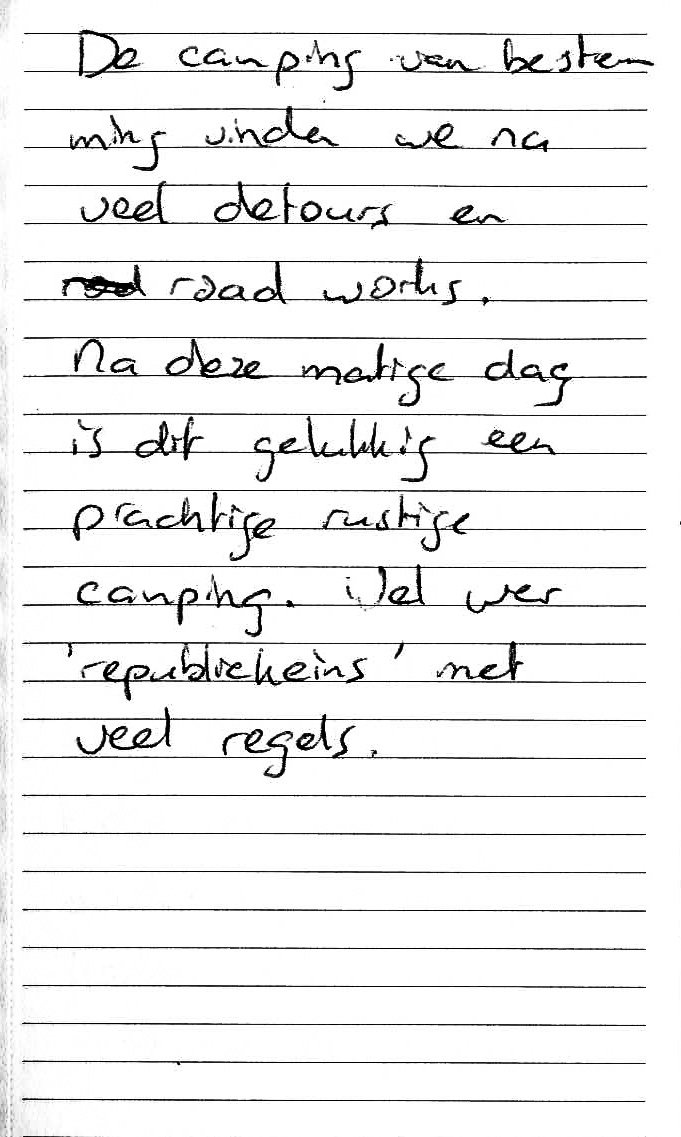 De camping van bestem
ming vinden we na
veel detours en
road works.
Na deze matige dag
is dit gelukkig een
prachtige rustige
camping. Wel wer
'republiekeins' met
veel regels.